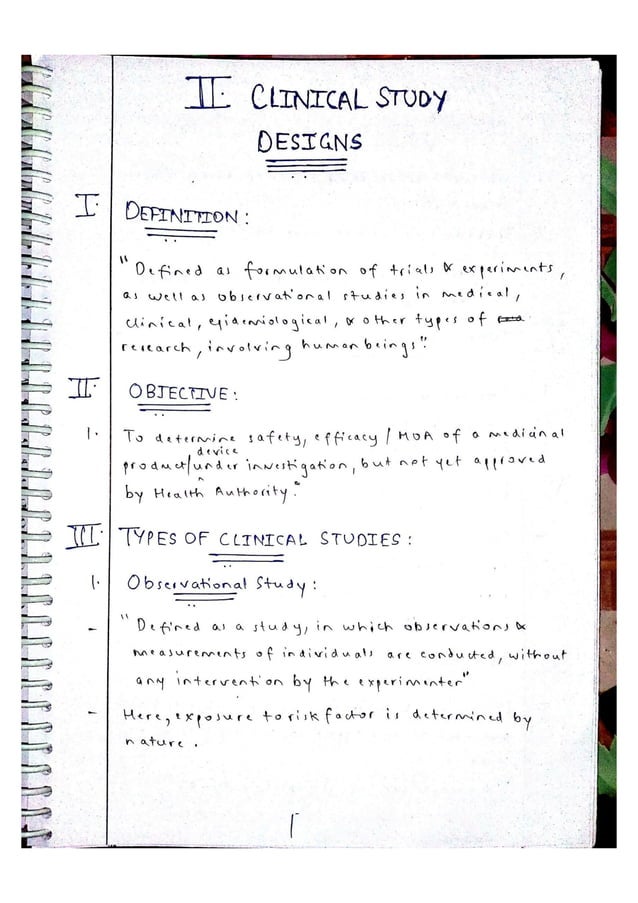 II. CLINICAL STUDY
DESIGNS
I. DEFINITION:
"Defined as formulation of trials & experiments,
as well as observational studies in medical,
clinical, epidemiological, & other types of
research, involving human beings".
II. OBJECTIVE:
1. To determine safety, efficacy / MOA of a medicinal
device
product/under investigation, but not yet approved
by Health Authority.
III. TYPES OF CLINICAL STUDIES:
1. Observational Study:
- "Defined as a study, in which observations &
measurements of individuals are conducted, without
any intervention by the experimenter"
- Here, exposure to risk factor is determined by
nature.
1